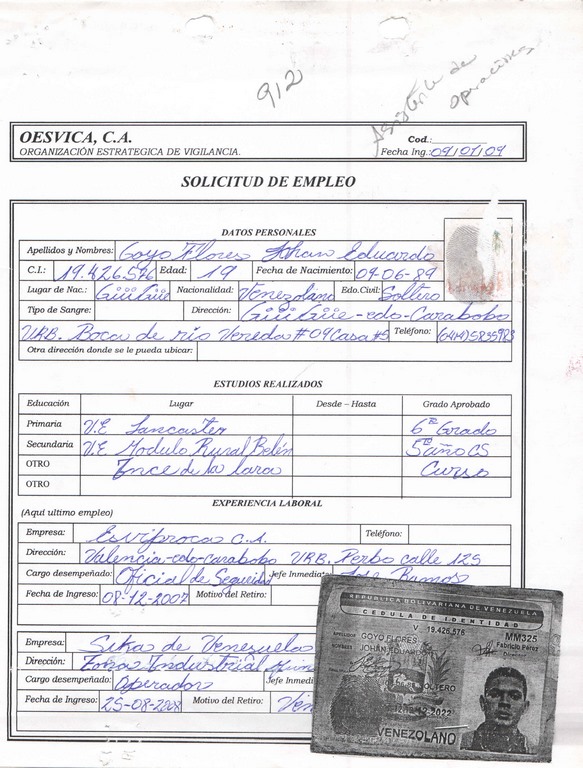 912
Asistente de
Operaciones
OESVICA, C.A.
ORGANIZACIÓN ESTRATEGICA DE VIGILANCIA.
Cod.:
Fecha Ing.: 09/07/09
SOLICITUD DE EMPLEO
DATOS PERSONALES
Apellidos y Nombres: Goyo Flores Johan Eduardo
C.I.: 19.426.576 Edad: 19 Fecha de Nacimiento: 09-06-89
Lugar de Nac.: Güigüe Nacionalidad: Venezolano Edo.Civil: Soltero
Tipo de Sangre: Dirección: Güigüe-edo-Carabobo
URB. Boca de rio Vereda #09 Casa #5 Teléfono: (0414)5835983
Otra dirección donde se le pueda ubicar:
ESTUDIOS REALIZADOS
Educación Lugar Desde – Hasta Grado Aprobado
Primaria V.E Lancaster 6to Grado
Secundaria V.E Modulo Rural Belén 5to año CS
OTRO Ince de la Curso
OTRO
EXPERIENCIA LABORAL
(Aqui ultimo empleo)
Empresa: C.A. Teléfono:
Dirección: Valencia-edo-carabobo URB. calle 125
Cargo desempeñado: Oficial de Jefe Inmedia Jose Ramos
Fecha de Ingreso: 08-12-2007 Motivo del Retiro:
Empresa: Sika de Venezuela
Dirección: Zona Industrial
Cargo desempeñado: Operador Jefe Inmedi
Fecha de Ingreso: 25-08-2008 Motivo del Retiro:
REPUBLICA BOLIVARIANA DE VENEZUELA
CEDULA DE IDENTIDAD
V 19.426.576
MM325
Fabricio Pérez
Director
APELLIDOS GOYO FLORES
NOMBRES JOHAN EDUARDO
SOLTERO
VENEZOLANO